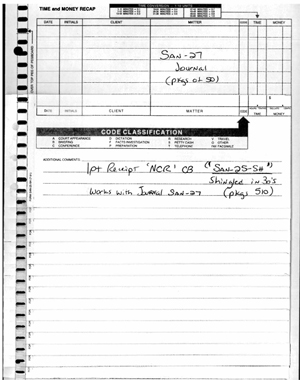 TIME and MONEY RECAP
DATE INITIALS CLIENT MATTER CODE TIME MONEY
SAN-27
JOURNAL
(pkgs of 50)
$
DATE INITIALS CLIENT MATTER CODE TIME MONEY
CODE CLASSIFICATION
A COURT APPEARANCE D DICTATION R RESEARCH V TRAVEL
B BRIEFING F FACTS INVESTIGATION S PETTY CASH O OTHER
C CONFERENCE P PREPARATION T TELEPHONE FAX FACSIMILE
ADDITIONAL COMMENTS
1pt Receipt 'NCR' CB ("SAN-25-SH")
Shingled in 30's
Works with Journal SAN-27 (pkgs 510)